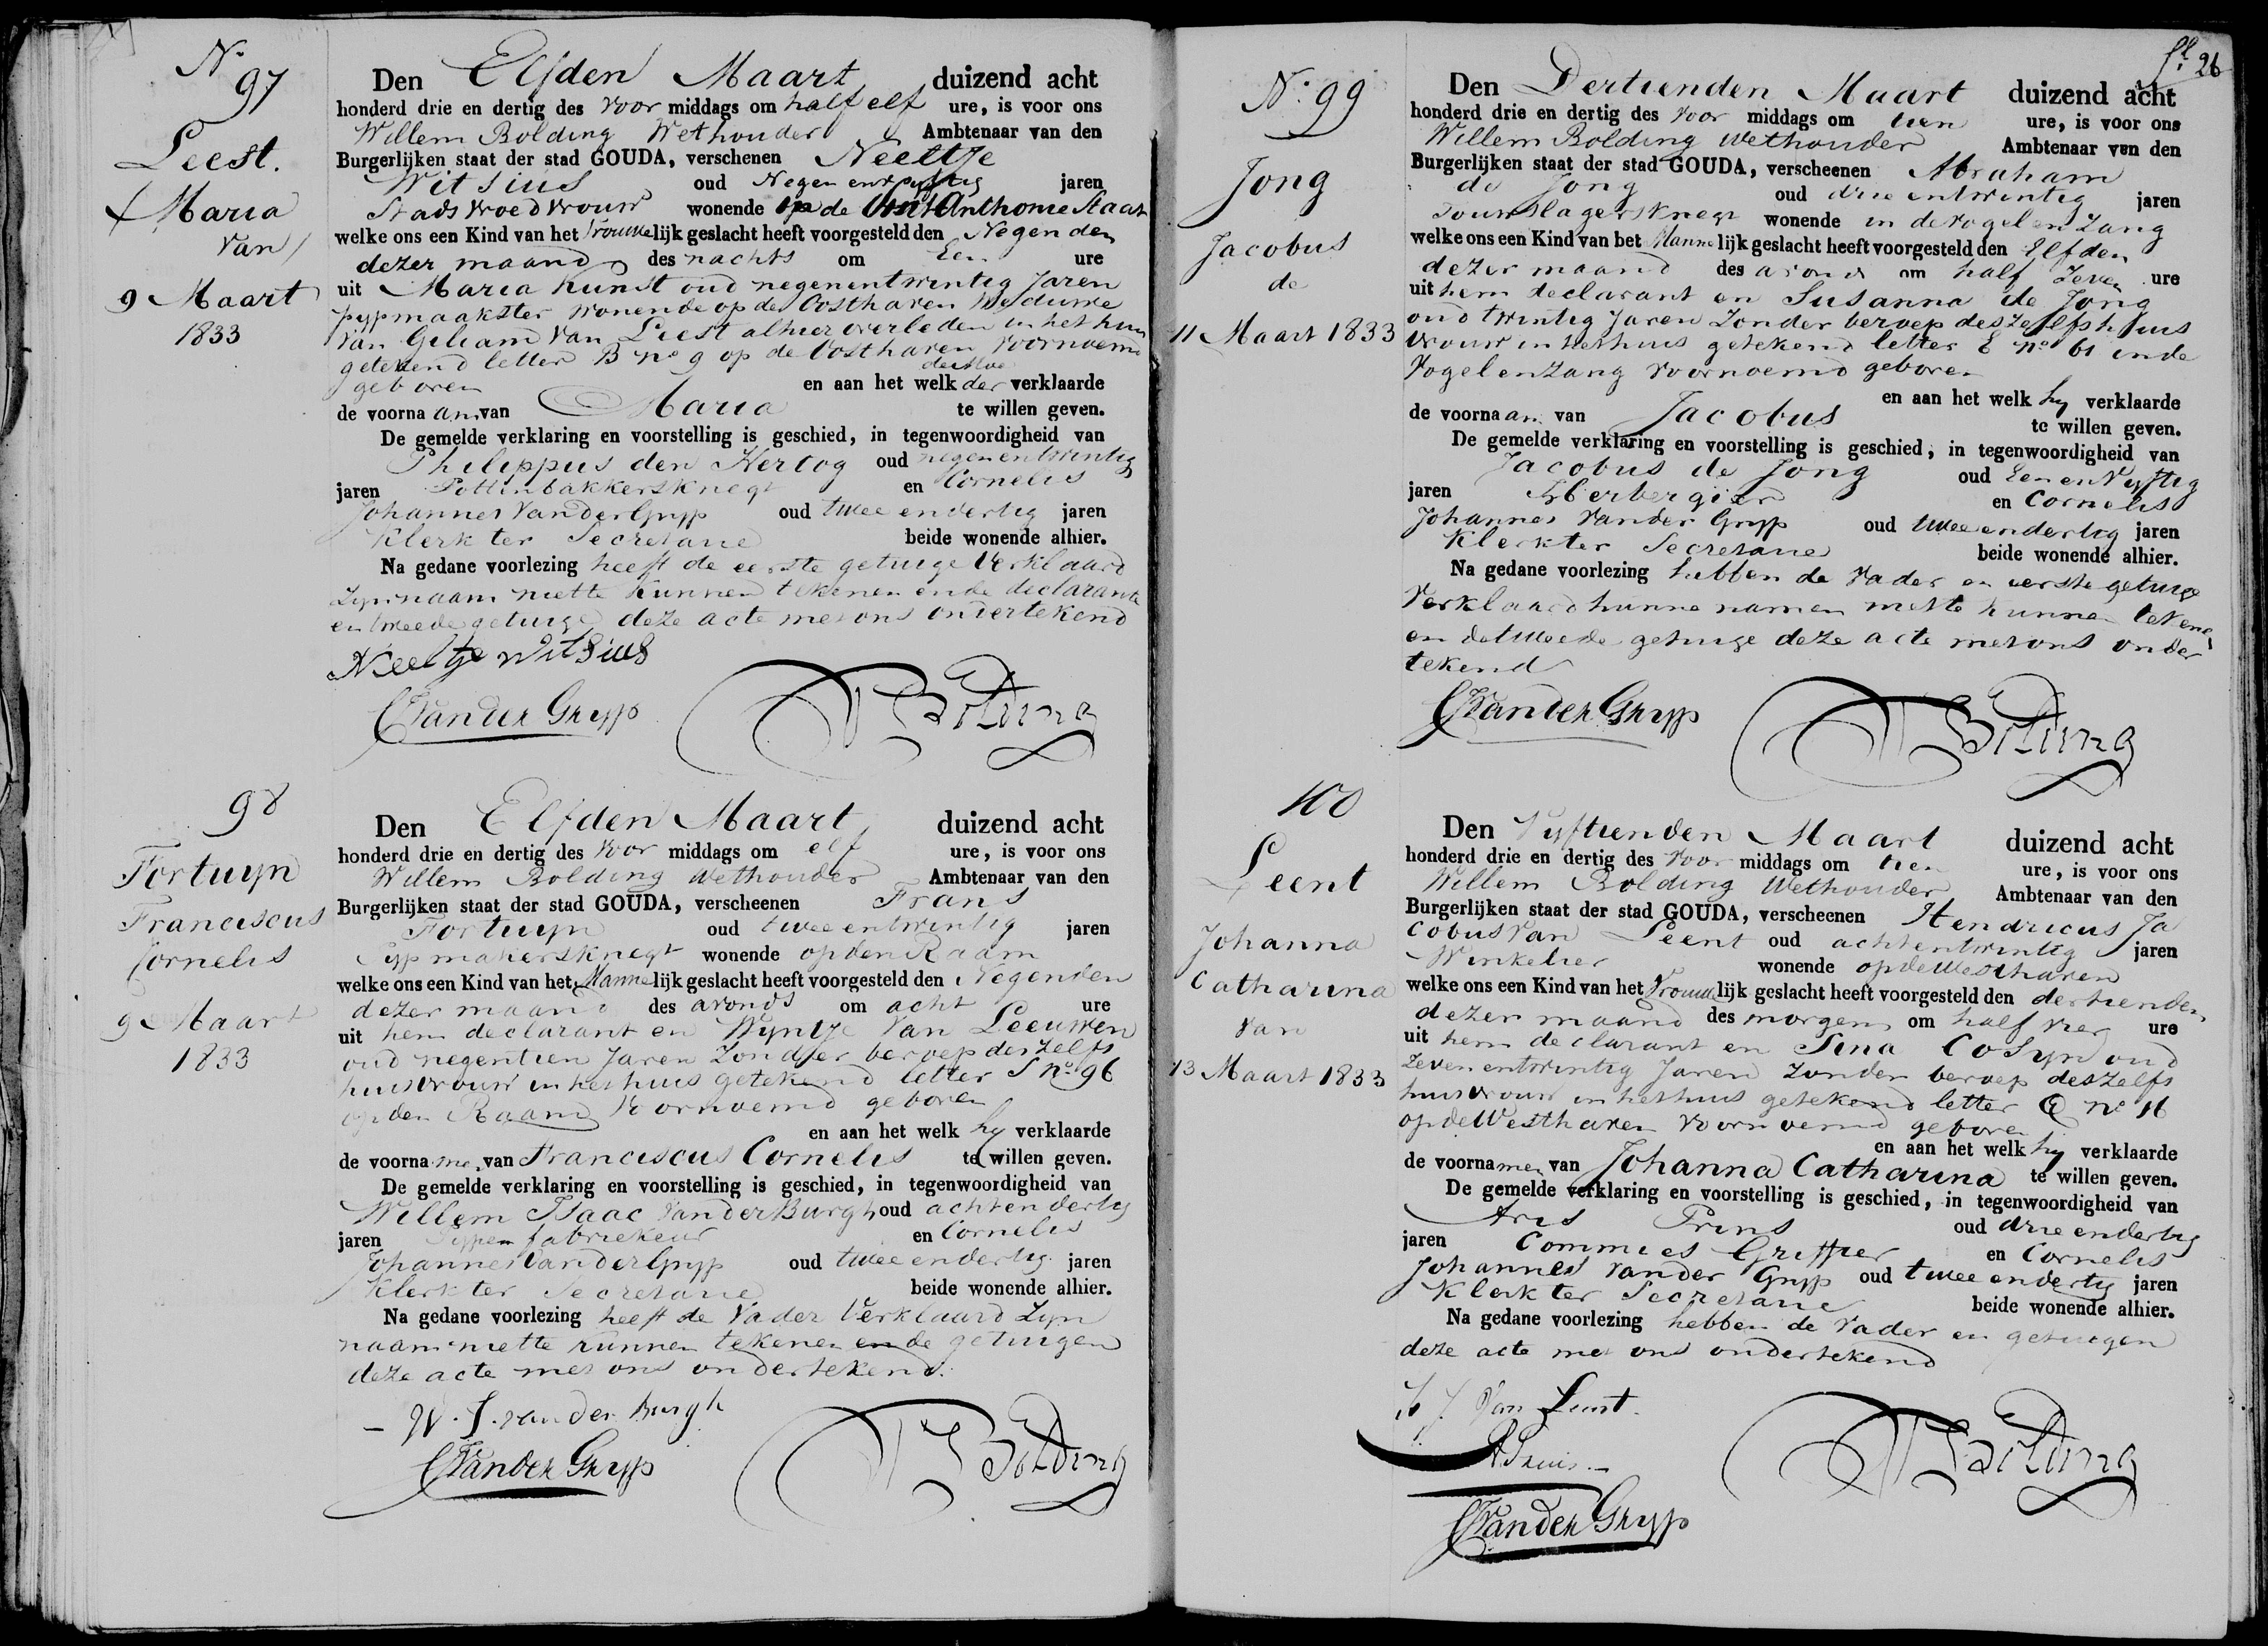 No
97
Leest.
Maria
van
9 Maart
1833
Den Elfden Maart duizend acht
honderd drie en dertig des voor middags om half elf ure, is voor ons
Willem Bolding Wethouder Ambtenaar van den
Burgerlijken staat der stad GOUDA, verschenen Neeltje
Witsius oud Negen en vyftig jaren
Stads vroedvrouw wonende op de Anthonie Staat
welke ons een Kind van het Vrouwelijk geslacht heeft voorgesteld den Negenden
dezer maand des nachts om Een ure
uit Maria Kunst oud negenentwintig Jaren
pypmaakster wonende op de Oosthaven Weduwe
van Geliam van Leest alhier overleden in het huis
getekend letter B no 9 op de Oosthaven voornoemd
geboren en aan het welk der verklaarde
dezelve
de voornaam van Maria te willen geven.
De gemelde verklaring en voorstelling is geschied, in tegenwoordigheid van
Philippus den Hertog oud negenentwintig
jaren Pottenbakkersknegt en Cornelis
Johannes van der Gryp oud twee en dertig jaren
Klerk ter Secretarie beide wonende alhier.
Na gedane voorlezing heeft de eerste getuige verklaard
zyn naam niette kunnen tekenen en de declarante
en tweede getuige deze acte met ons ondertekend
Neeltje Witsius
CJvander Gryp WBolding
98
Fortuyn
Franciscus
Cornelis
9 Maart
1833
Den Elfden Maart duizend acht
honderd drie en dertig des voor middags om elf ure, is voor ons
Willem Bolding Wethouder Ambtenaar van den
Burgerlijken staat der stad GOUDA, verscheenen Frans
Fortuyn oud tweeentwintig jaren
Pypmakersknegt wonende op den Raam
welke ons een Kind van het Mannelijk geslacht heeft voorgesteld den Negenden
dezer maand des avonds om acht ure
uit hem declarant en Wyntje van Leeuwen
oud negentien Jaren zonder beroep deszelfs
huisvrouw in het huis getekend letter S no 96
op den Raam voornoemd geboren
en aan het welk hy verklaarde
de voorname van Franciscus Cornelis te willen geven.
De gemelde verklaring en voorstelling is geschied, in tegenwoordigheid van
Willem Isaac van der Burgh oud achtendertig
jaren Pypenfabriekeur en Cornelis
Johannes van der Gryp oud twee en dertig jaren
Klerk ter Secretarie beide wonende alhier.
Na gedane voorlezing heeft de Vader verklaard zyn
naam niette kunnen tekenen en de getuigen
deze acte met ons ondertekend.
W. I. van der Burgh
CJvander Gryp WBolding
fl. 26
No. 99
Jong
Jacobus
de
11 Maart 1833
Den Dertienden Maart duizend acht
honderd drie en dertig des voor middags om tien ure, is voor ons
Willem Bolding Wethouder Ambtenaar van den
Burgerlijken staat der stad GOUDA, verscheenen Abraham
de Jong oud drieentwintig jaren
Touwslagersknegt wonende in de vogelenzang
welke ons een Kind van het Mannelijk geslacht heeft voorgesteld den Elfden
dezer maand des avonds om half zeven ure
uit hem declarant en Susanna de Jong
oud twintig Jaren zonder beroep deszelfs huis
vrouw in het huis getekend letter E no 61 in de
Vogelenzang voornoemd geboren
en aan het welk hy verklaarde
de voornaam van Jacobus te willen geven.
De gemelde verklaring en voorstelling is geschied, in tegenwoordigheid van
Jacobus de Jong oud Een en Vyftig
jaren Herbergier en Cornelis
Johannes vander Gryp oud twee en dertig jaren
Klerk ter Secretarie beide wonende alhier.
Na gedane voorlezing hebben de vader en eerste getuige
verklaard hunne namen niette kunnen tekenen
en de tweede getuige deze acte met ons onder
tekend
CJvander Gryp WBolding
100
Leent
Johanna
Catharina
van
13 Maart 1833
Den Vyftienden Maart duizend acht
honderd drie en dertig des voor middags om tien ure, is voor ons
Willem Bolding Wethouder Ambtenaar van den
Burgerlijken staat der stad GOUDA, verscheenen Hendricus Ja
cobus van Leent oud achtentwintig jaren
Winkelier wonende op de Westhaven
welke ons een Kind van het Vrouwelijk geslacht heeft voorgesteld den dertienden
dezer maand des morgens om half vier ure
uit hem declarant en Sina Cosyn oud
zevenentwintig Jaren zonder beroep deszelfs
huisvrouw in het huis getekend letter C no 16
op de Westhaven voornoemd geboren
en aan het welk hy verklaarde
de voornamen van Johanna Catharina te willen geven.
De gemelde verklaring en voorstelling is geschied, in tegenwoordigheid van
Aris Prins oud drieendertig
jaren Commies Griffier en Cornelis
Johannes vander Gryp oud twee en dertig jaren
Klerk ter Secretarie beide wonende alhier.
Na gedane voorlezing hebben de vader en getuigen
deze acte met ons ondertekend
H J van Leent.
APrins.
CJvander Gryp WBolding